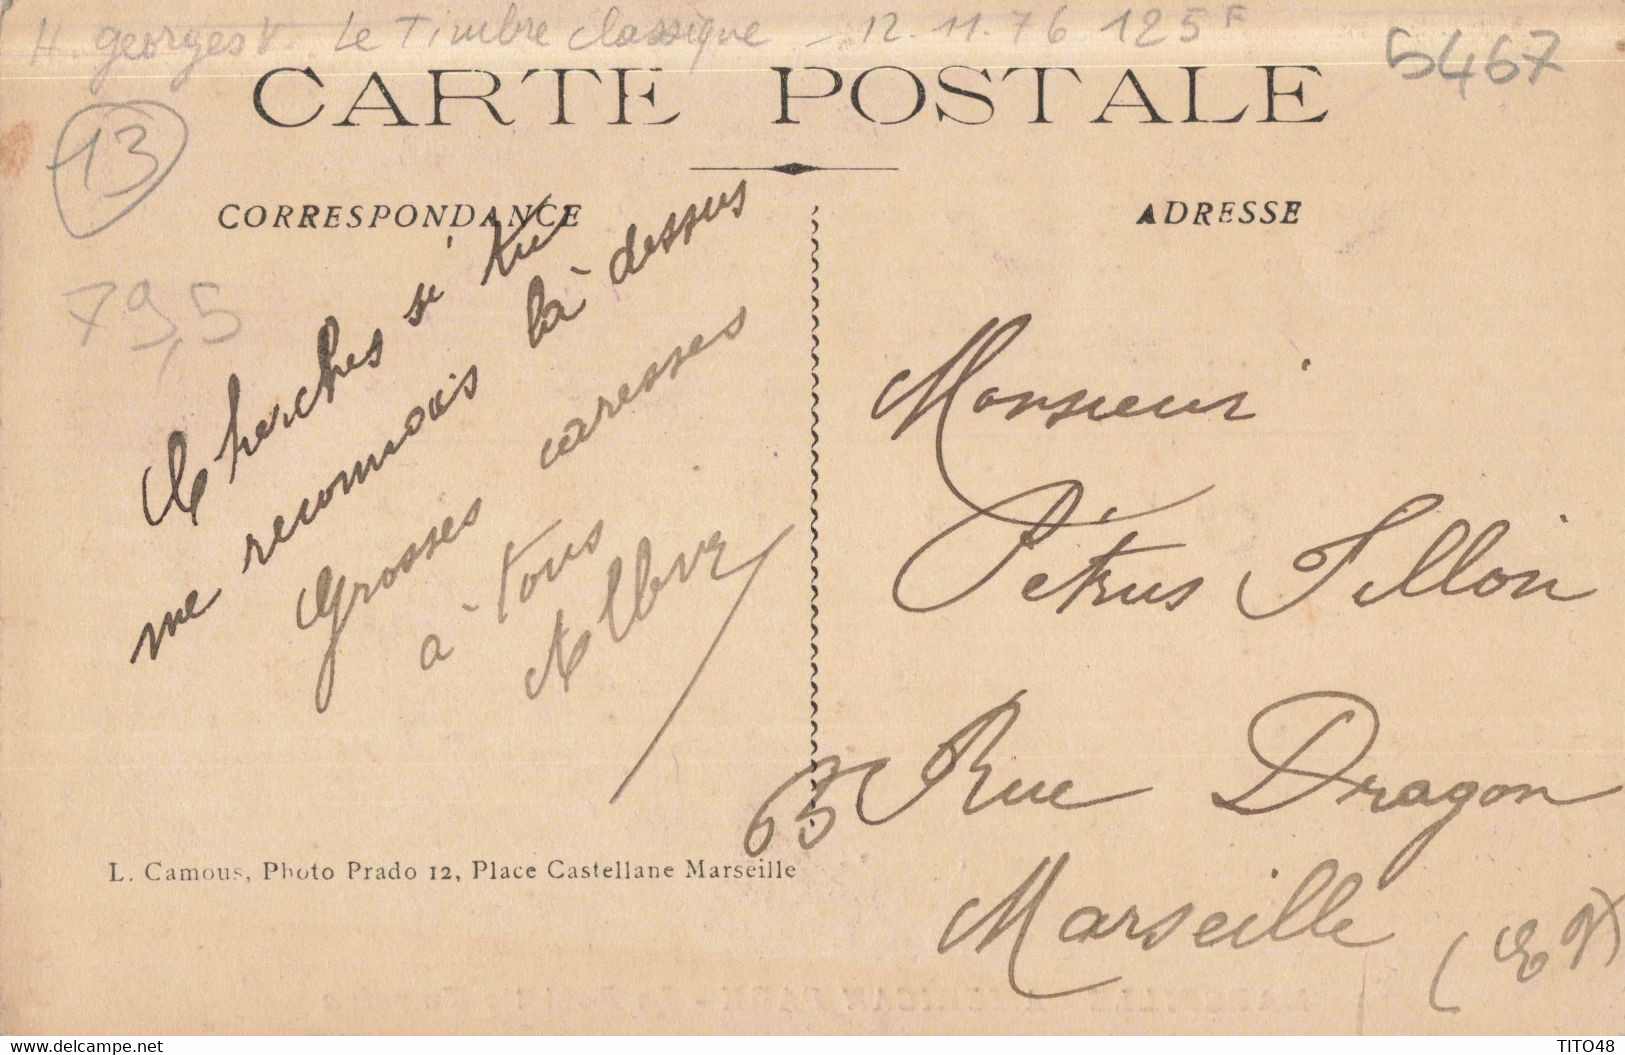 H. georges V. Le Timbre classique - 12.11.76 125F
5467
CARTE POSTALE
13
CORRESPONDANCE
ADRESSE
79,5
Cherches si tu
me reconnais là dessus
Grosses caresses
à tous
Monsieur
Pétrus Fillon
65 Rue Dragon
Marseille
L. Camous, Photo Prado 12, Place Castellane Marseille
delcampe.net
TITO48